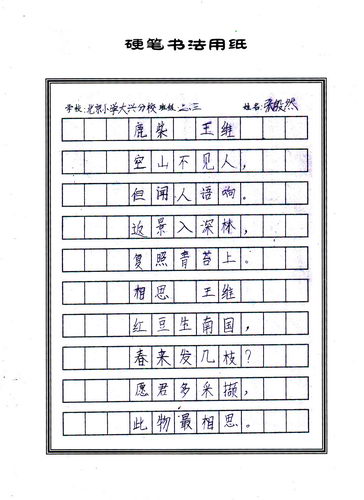 硬笔书法用纸
学校:北京小学大兴分校 班级 二.三 姓名: 然
鹿柴 王维
空山不见人,
但闻人语响。
返景入深林,
复照青苔上。
相思 王维
红豆生南国,
春来发几枝?
愿君多采撷,
此物最相思。